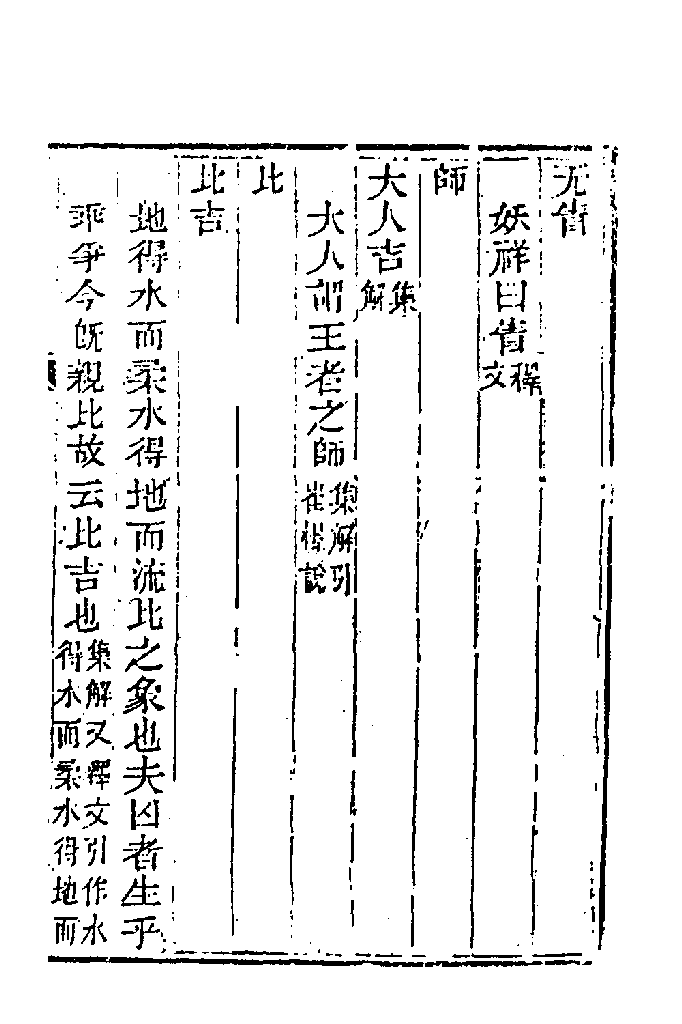 无眚
妖祥曰眚釋文
師
大人吉集解
大人謂王者之師集解引崔憬說
比
比吉
地得水而柔水得地而流比之象也夫凶者生乎
乖爭今旣親比故云比吉也集解又釋文引作水得水而柔水得地而